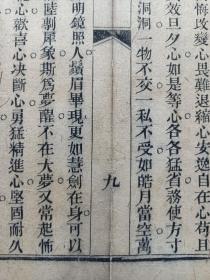 悔改變心畏難退縮心安逸自在心
效旦夕心如是等心各各猛省務使方寸
洞洞一物不交一私不受如皓月當空萬
九
明鏡照人鬚眉畢現更如慧劍在身可以
陸剸犀象斯爲夢醒不在大夢又當起怖
心歡喜心決斷心勇猛精進心堅固耐久